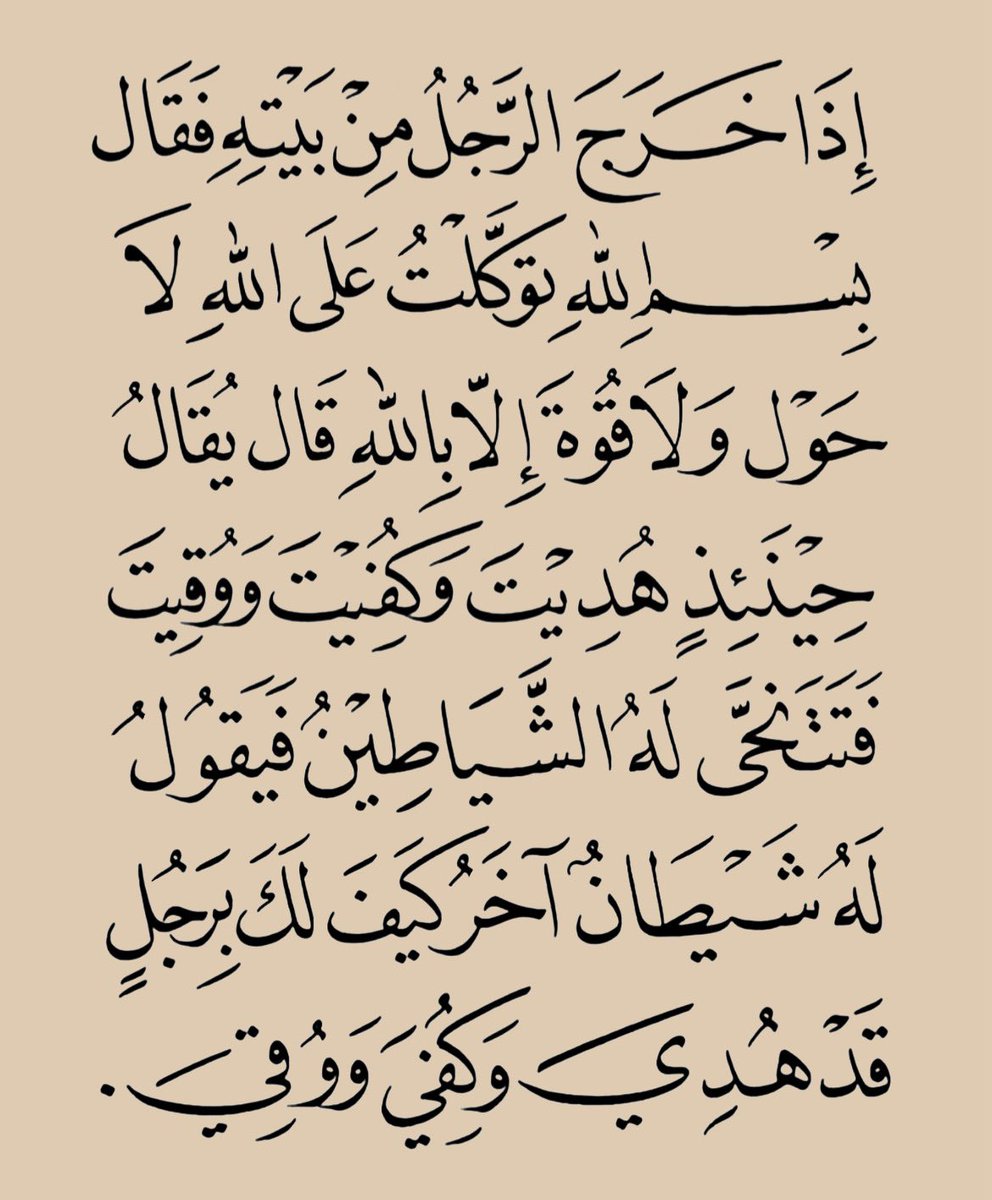 إِذَا خَرَجَ الرَّجُلُ مِنْ بَيْتِهِ فَقَال
بِسْمِ اللهِ تَوَكَّلْتُ عَلَى اللهِ لَا
حَوْل وَلَا قُوةَ إِلّا بِاللهِ قَال يُقَالُ
حِيْنَئِذٍ هُدِيْتَ وَكُفِيْتَ وَوُقِيتَ
فَتَتَنَحَّى لَهُ الشَّيَاطِيْنُ فَيَقُولُ
لَهُ شَيْطَانٌ آخَرُ كَيَفَ لَكَ بِرَجُلٍ
قَدْ هُدِي وَكُفِيَ وَوُقِي.